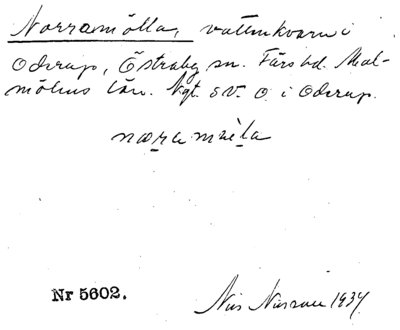 Norramölla, vattenkvarn i
Oderup, Östraby sn. Färs hd. Mal-
möhus län. Ngt. s.v. o. i Oderup.
Nr 5602.
Nils Nilsson 1934